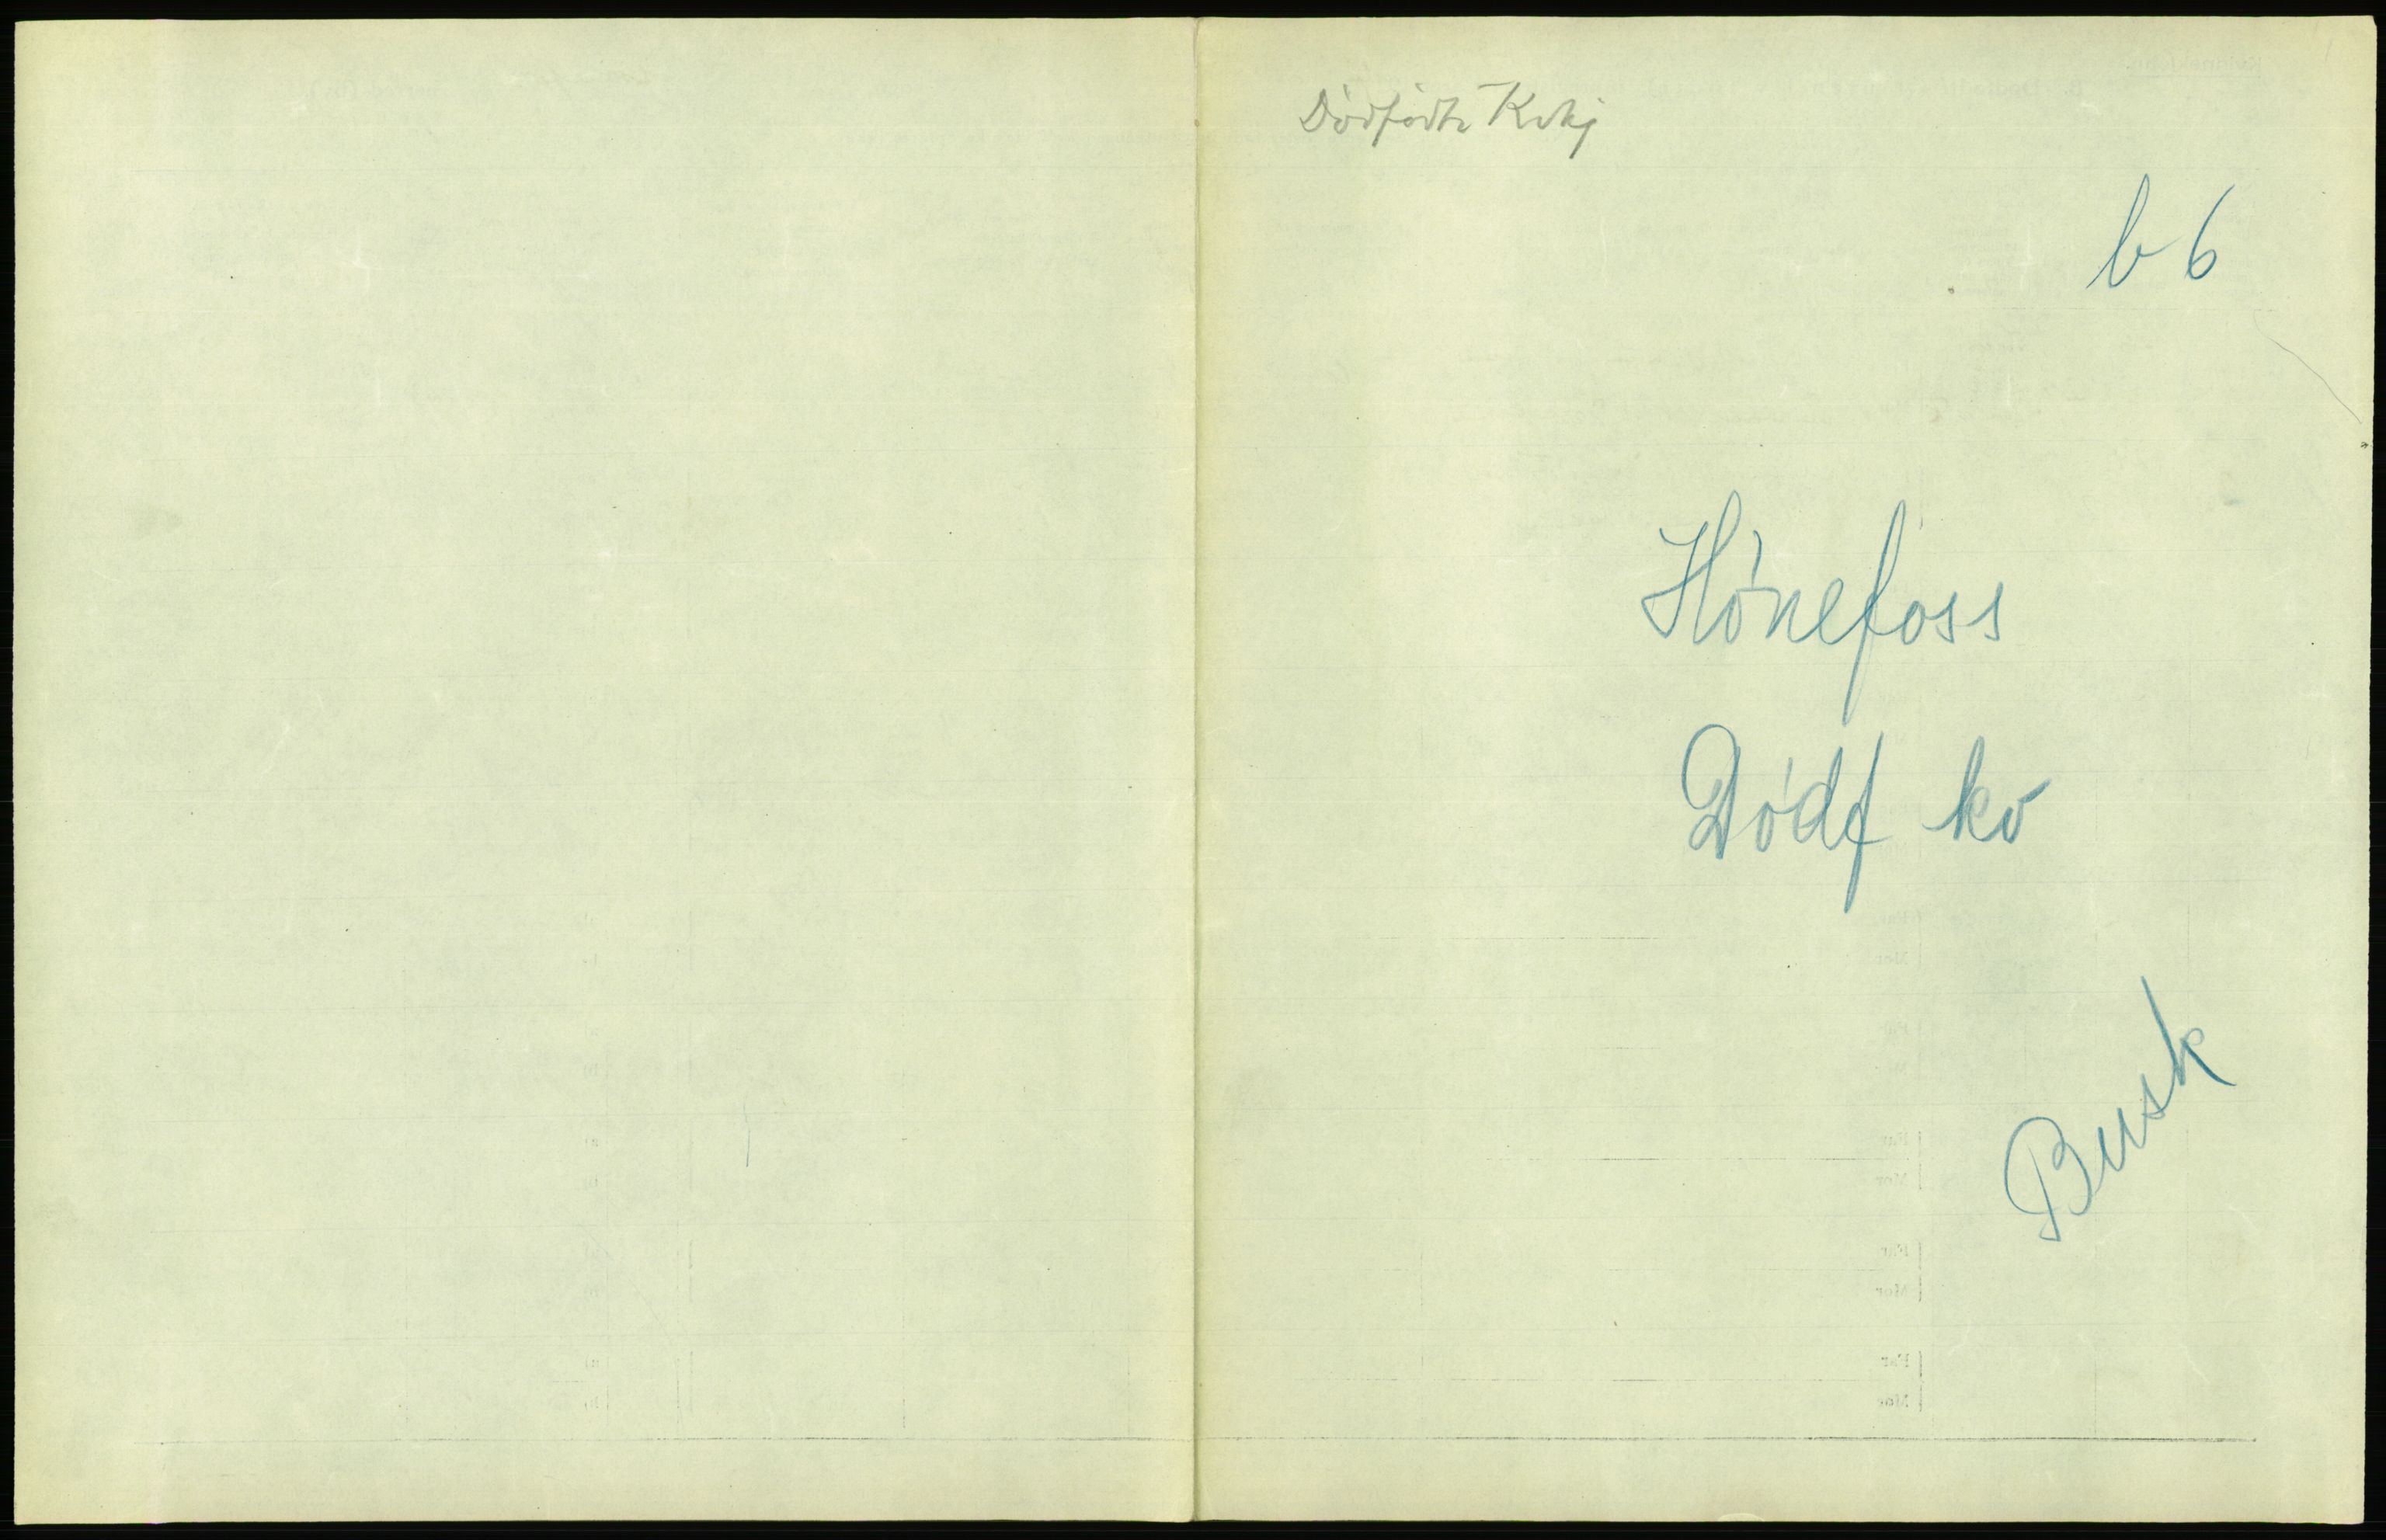 Dødfødte Kvkj
b 6
Hönefoss
Dødf kv
Busk